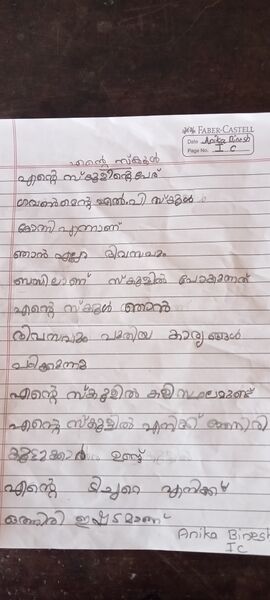 FABER-CASTELL
Date Anika Binesh
Page No. I C
എന്റെ സ്കൂൾ
എന്റെ സ്കൂളിന്റെപേര്
ഗവൺമെന്റ് എൽ.പി സ്കൂൾ
കോന്നി എന്നാണ്
ഞാൻ എല്ലാ ദിവസവും
ബസിലാണ് സ്കൂളിൽ പോകുന്നത്
എന്റെ സ്കൂൾ ഞാൻ
ദിവസവും പുതിയ കാര്യങ്ങൾ
പഠിക്കുന്നു
എന്റെ സ്കൂളിൽ കളിസ്ഥലമുണ്ട്
എന്റെ സ്കൂളിൽ എനിക്ക് ഒത്തിരി
കൂട്ടുക്കാർ ഉണ്ട്
എന്റെ ടീച്ചറെ എനിക്ക്
ഒത്തിരി ഇഷ്ടമാണ്
Anika Binesh
I C